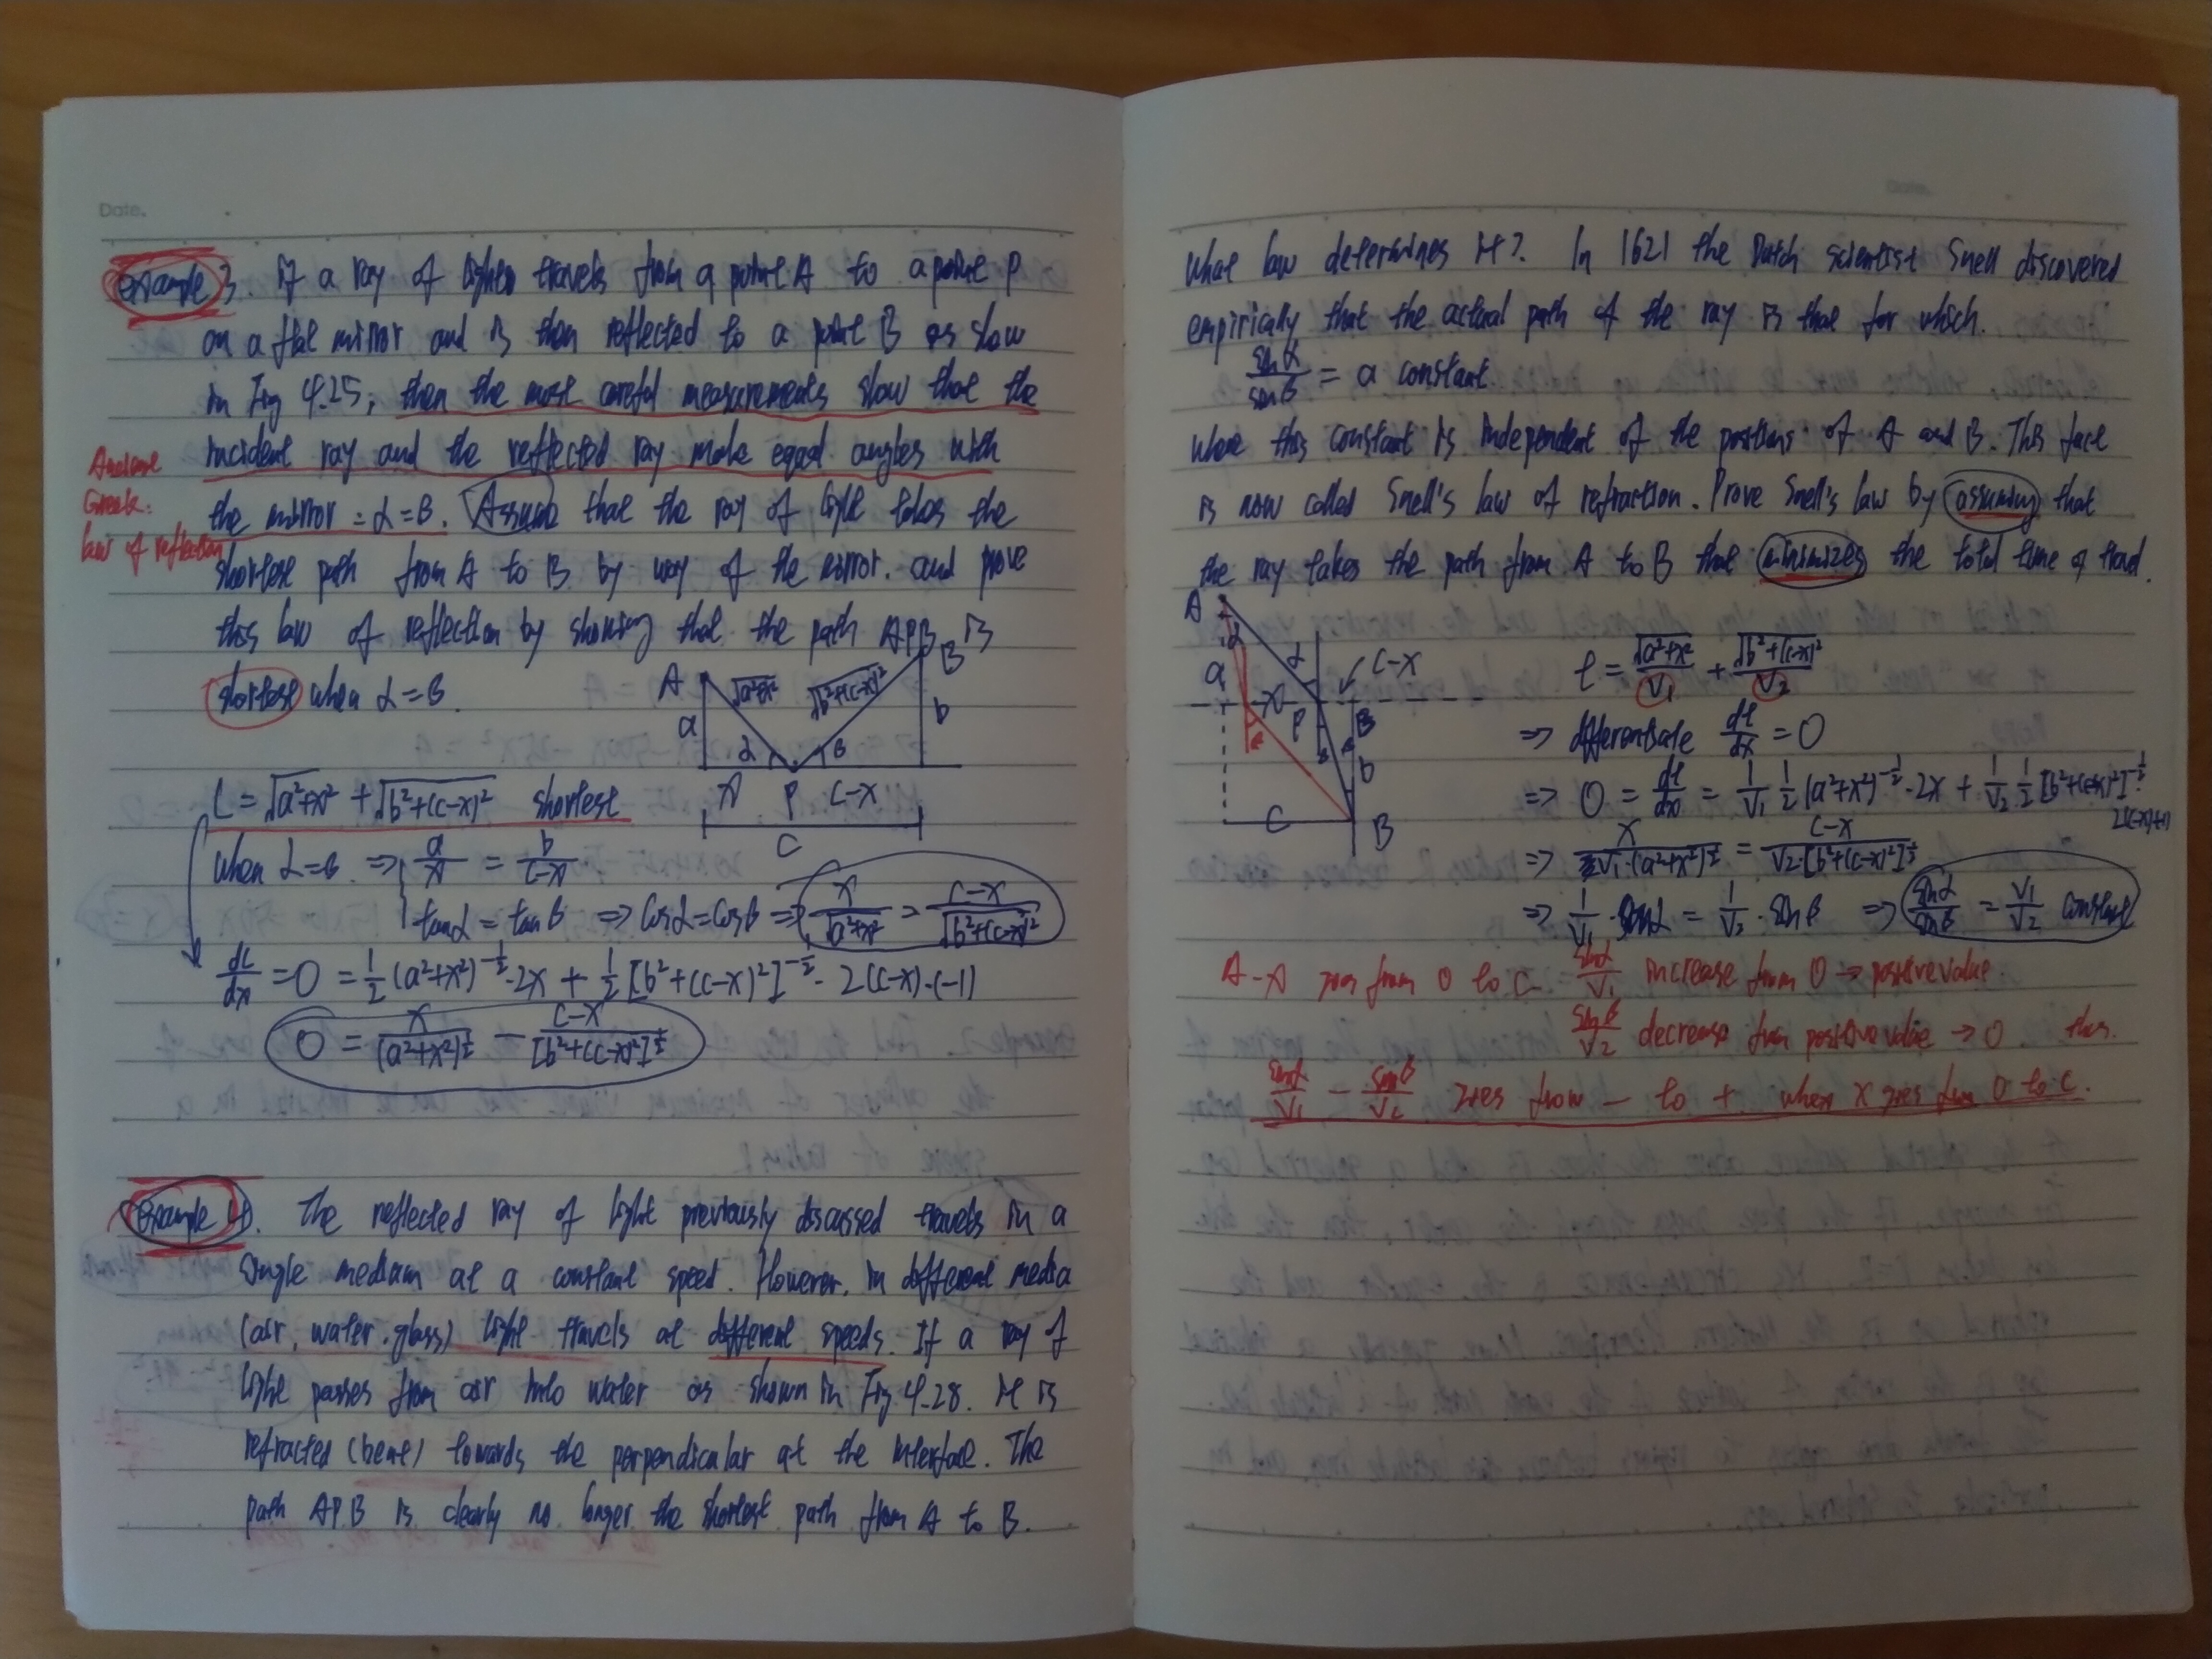 Date.
example 3. If a ray of light travels from a point A to a point P
on a flat mirror and is then reflected to a point B as show
in Fig 4.25, then the most careful measurements show that the
incident ray and the reflected ray make equal angles with
the mirror = α=β. Assume that the ray of light takes the
shortest path from A to B by way of the mirror. and prove
this law of reflection by showing that the path APB is
shortest when α=β.
Awesome
Greek:
law of reflection
A B
√a²+x² √b²+(c-x)²
a b
α β
x P c-x
c
L = √a²+x² + √b²+(c-x)² shortest
when α=β. ⇒ a/x = b/c-x
tanα = tanβ ⇒ cosα=cosβ ⇒ x/√a²+x² = c-x/√b²+(c-x)²
dL/dx = 0 = 1/2 (a²+x²)^-1/2 · 2x + 1/2 [b²+(c-x)²]^-1/2 · 2(c-x)·(-1)
0 = x/(a²+x²)^1/2 - c-x/[b²+(c-x)²]^1/2
example 4. The reflected ray of light previously discussed travels in a
single medium at a constant speed. However, in different media
(air, water, glass) light travels at different speeds. If a ray of
light passes from air into water as shown in Fig 4.28. It is
refracted (bent) towards the perpendicular at the interface. The
path APB is clearly no longer the shortest path from A to B.
Date.
What law determines it? In 1621 the Dutch scientist Snell discovered
empirically that the actual path of the ray is that for which.
sinα/sinβ = a constant
where this constant is independent of the positions of A and B. This fact
is now called Snell's law of refraction. Prove Snell's law by assuming that
the ray takes the path from A to B that minimizes the total time of travel.
A
α
α c-x
a
x P B
β
b
c B
t = √a²+x²/v₁ + √b²+(c-x)²/v₂
⇒ differentiate dt/dx = 0
⇒ 0 = dt/dx = 1/v₁ 1/2 (a²+x²)^-1/2 · 2x + 1/v₂ · 1/2 [b²+(c-x)²]^-1/2 ·
2(c-x)(-1)
⇒ x/v₁·(a²+x²)^1/2 = c-x/v₂·[b²+(c-x)²]^1/2
⇒ 1/v₁ · sinα = 1/v₂ · sinβ ⇒ sinα/sinβ = v₁/v₂ constant
goes from 0 to c. sinα/v₁ increase from 0 → positive value.
sinβ/v₂ decrease from positive value → 0 thus.
sinα/v₁ - sinβ/v₂ goes from - to + when x goes from 0 to c.